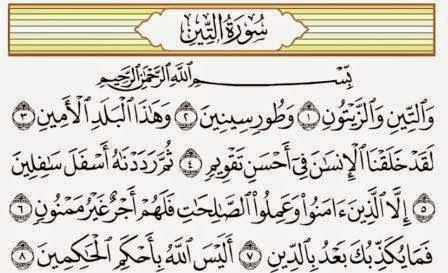 سُورَةُ التِّينِ
بِسْمِ اللَّهِ الرَّحْمَٰنِ الرَّحِيمِ
وَالتِّينِ وَالزَّيْتُونِ ١ وَطُورِ سِينِينَ ٢ وَهَٰذَا الْبَلَدِ الْأَمِينِ ٣
لَقَدْ خَلَقْنَا الْإِنسَانَ فِي أَحْسَنِ تَقْوِيمٍ ٤ ثُمَّ رَدَدْنَاهُ أَسْفَلَ سَافِلِينَ
٥ إِلَّا الَّذِينَ ءَامَنُوا وَعَمِلُوا الصَّالِحَاتِ فَلَهُمْ أَجْرٌ غَيْرُ مَمْنُونٍ ٦
فَمَا يُكَذِّبُكَ بَعْدُ بِالدِّينِ ٧ أَلَيْسَ اللَّهُ بِأَحْكَمِ الْحَاكِمِينَ ٨